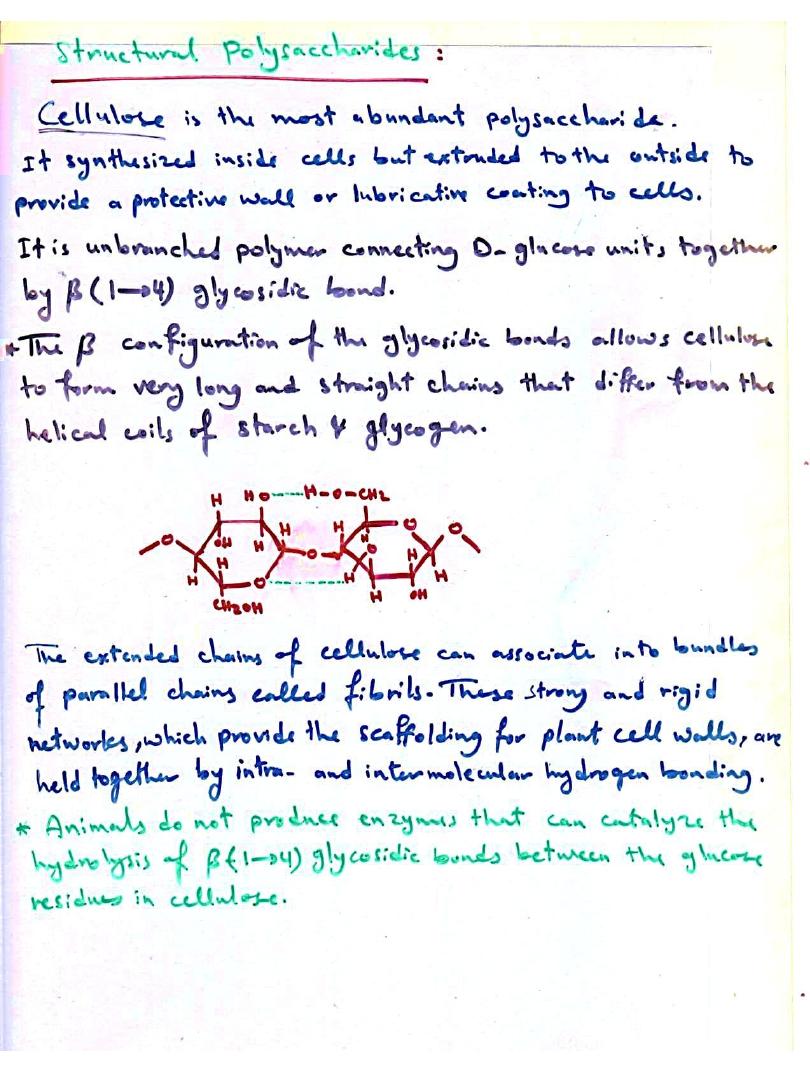 Structural Polysaccharides :
Cellulose is the most abundant polysaccharide.
It synthesized inside cells but extruded to the outside to
provide a protective wall or lubricative coating to cells.
It is unbranched polymer connecting D-glucose units together
by β(1→4) glycosidic bond.
*The β configuration of the glycosidic bonds allows cellulose
to form very long and straight chains that differ from the
helical coils of starch & glycogen.
H HO H-O-CH2
OH H H H H O O
O H O O H
H O H H
CH2OH H OH
The extended chains of cellulose can associate into bundles
of parallel chains called fibrils. These strong and rigid
networks, which provide the scaffolding for plant cell walls, are
held together by intra- and intermolecular hydrogen bonding.
* Animals do not produce enzymes that can catalyze the
hydrolysis of β(1→4) glycosidic bonds between the glucose
residues in cellulose.